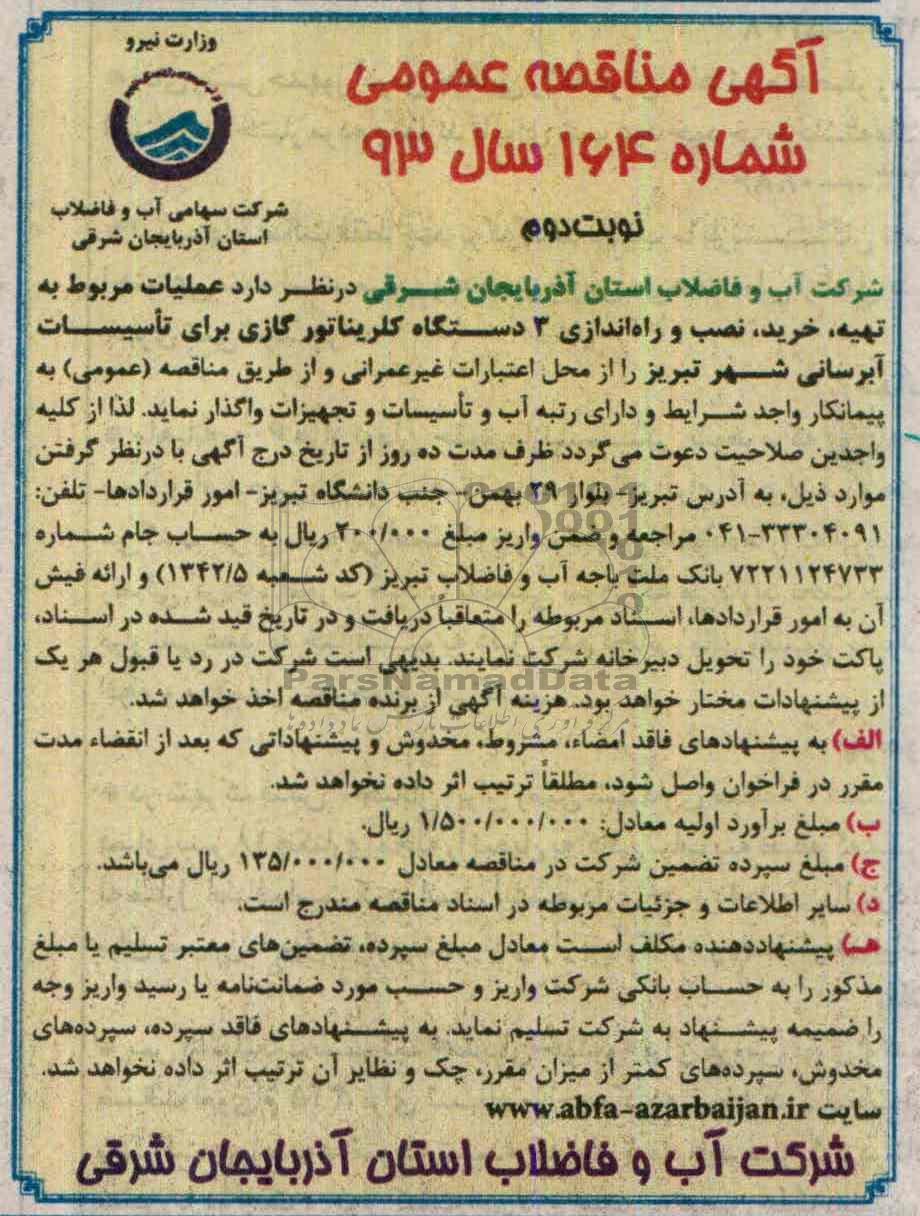 وزارت نیرو
شرکت سهامی آب و فاضلاب
استان آذربایجان شرقی
آگهی مناقصه عمومی
شماره ۱۶۴ سال ۹۳
نوبت دوم
شرکت آب و فاضلاب استان آذربایجان شرقی درنظر دارد عملیات مربوط به
تهیه، خرید، نصب و راه‌اندازی ۳ دستگاه کلریناتور گازی برای تأسیسات
آبرسانی شهر تبریز را از محل اعتبارات غیرعمرانی و از طریق مناقصه (عمومی) به
پیمانکار واجد شرایط و دارای رتبه آب و تأسیسات و تجهیزات واگذار نماید. لذا از کلیه
واجدین صلاحیت دعوت می‌گردد ظرف مدت ده روز از تاریخ درج آگهی با درنظر گرفتن
موارد ذیل، به آدرس تبریز- بلوار ۲۹ بهمن- جنب دانشگاه تبریز- امور قراردادها- تلفن:
۰۴۱-۳۳۳۰۴۰۹۱ مراجعه و ضمن واریز مبلغ ۲۰۰/۰۰۰ ریال به حساب جام شماره
۷۲۲۱۱۲۴۷۳۳ بانک ملت باجه آب و فاضلاب تبریز (کد شعبه ۱۳۴۲/۵) و ارائه فیش
آن به امور قراردادها، اسناد مربوطه را متعاقباً دریافت و در تاریخ قید شده در اسناد،
پاکت خود را تحویل دبیرخانه شرکت نمایند. بدیهی است شرکت در رد یا قبول هر یک
از پیشنهادات مختار خواهد بود. هزینه آگهی از برنده مناقصه اخذ خواهد شد.
ParsNamadData
الف) به پیشنهادهای فاقد امضاء، مشروط، مخدوش و پیشنهاداتی که بعد از انقضاء مدت
مقرر در فراخوان واصل شود، مطلقاً ترتیب اثر داده نخواهد شد.
ب) مبلغ برآورد اولیه معادل: ۱/۵۰۰/۰۰۰/۰۰۰ ریال.
ج) مبلغ سپرده تضمین شرکت در مناقصه معادل ۱۳۵/۰۰۰/۰۰۰ ریال می‌باشد.
د) سایر اطلاعات و جزئیات مربوطه در اسناد مناقصه مندرج است.
هـ) پیشنهاددهنده مکلف است معادل مبلغ سپرده، تضمین‌های معتبر تسلیم یا مبلغ
مذکور را به حساب بانکی شرکت واریز و حسب مورد ضمانت‌نامه یا رسید واریز وجه
را ضمیمه پیشنهاد به شرکت تسلیم نماید. به پیشنهادهای فاقد سپرده، سپرده‌های
مخدوش، سپرده‌های کمتر از میزان مقرر، چک و نظایر آن ترتیب اثر داده نخواهد شد.
سایت www.abfa-azarbaijan.ir
شرکت آب و فاضلاب استان آذربایجان شرقی